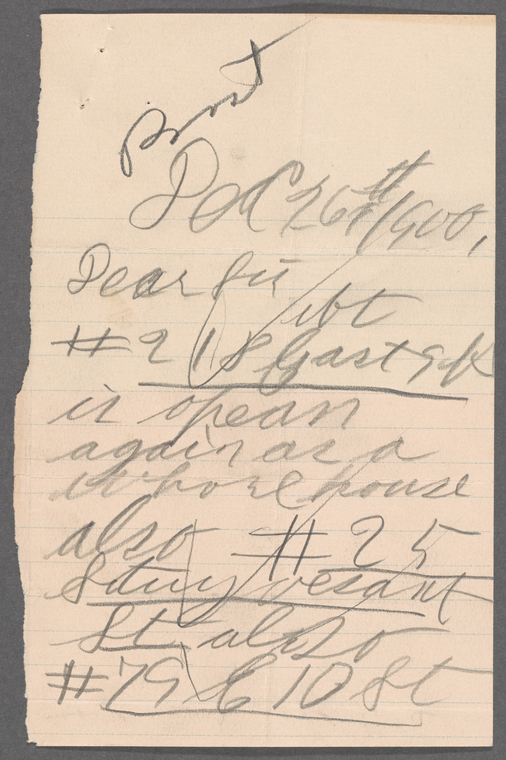 Dec 26th/1900,
Dear Sir
#218 East 9th
is opean
again as a
Whore house
also #25
Stuyvesant
St. also
#79 E 10 St